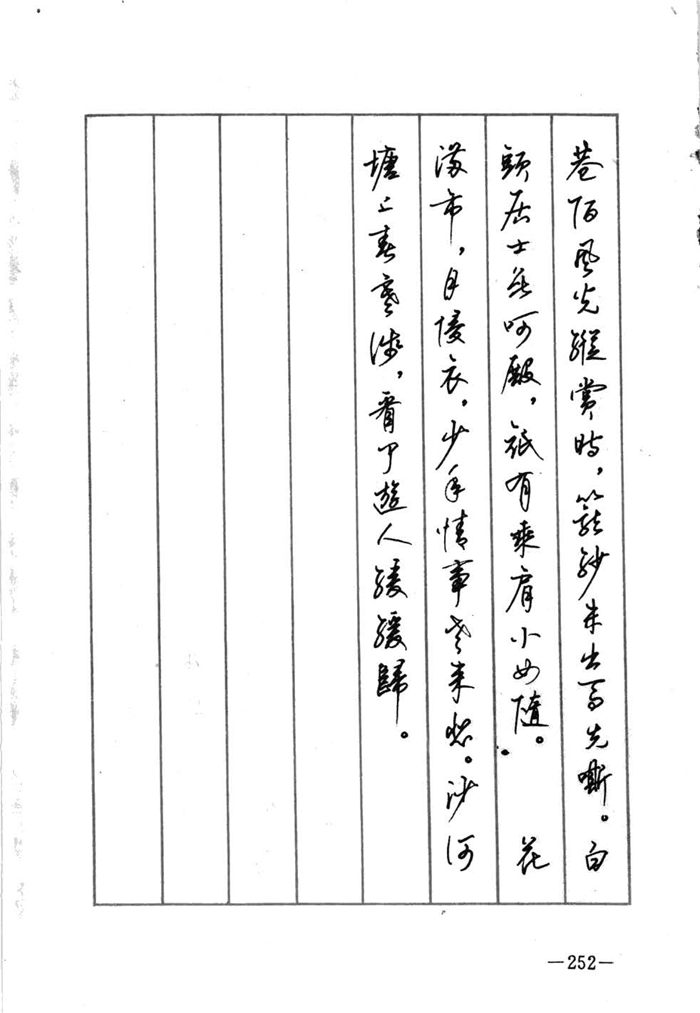 巷陌風光縱賞時，籠紗未出馬先嘶。白
頭居士無呵殿，祇有乘肩小女隨。　花
滿市，月侵衣，少年情事老來悲。沙河
塘上春寒淺，看了遊人緩緩歸。
—252—